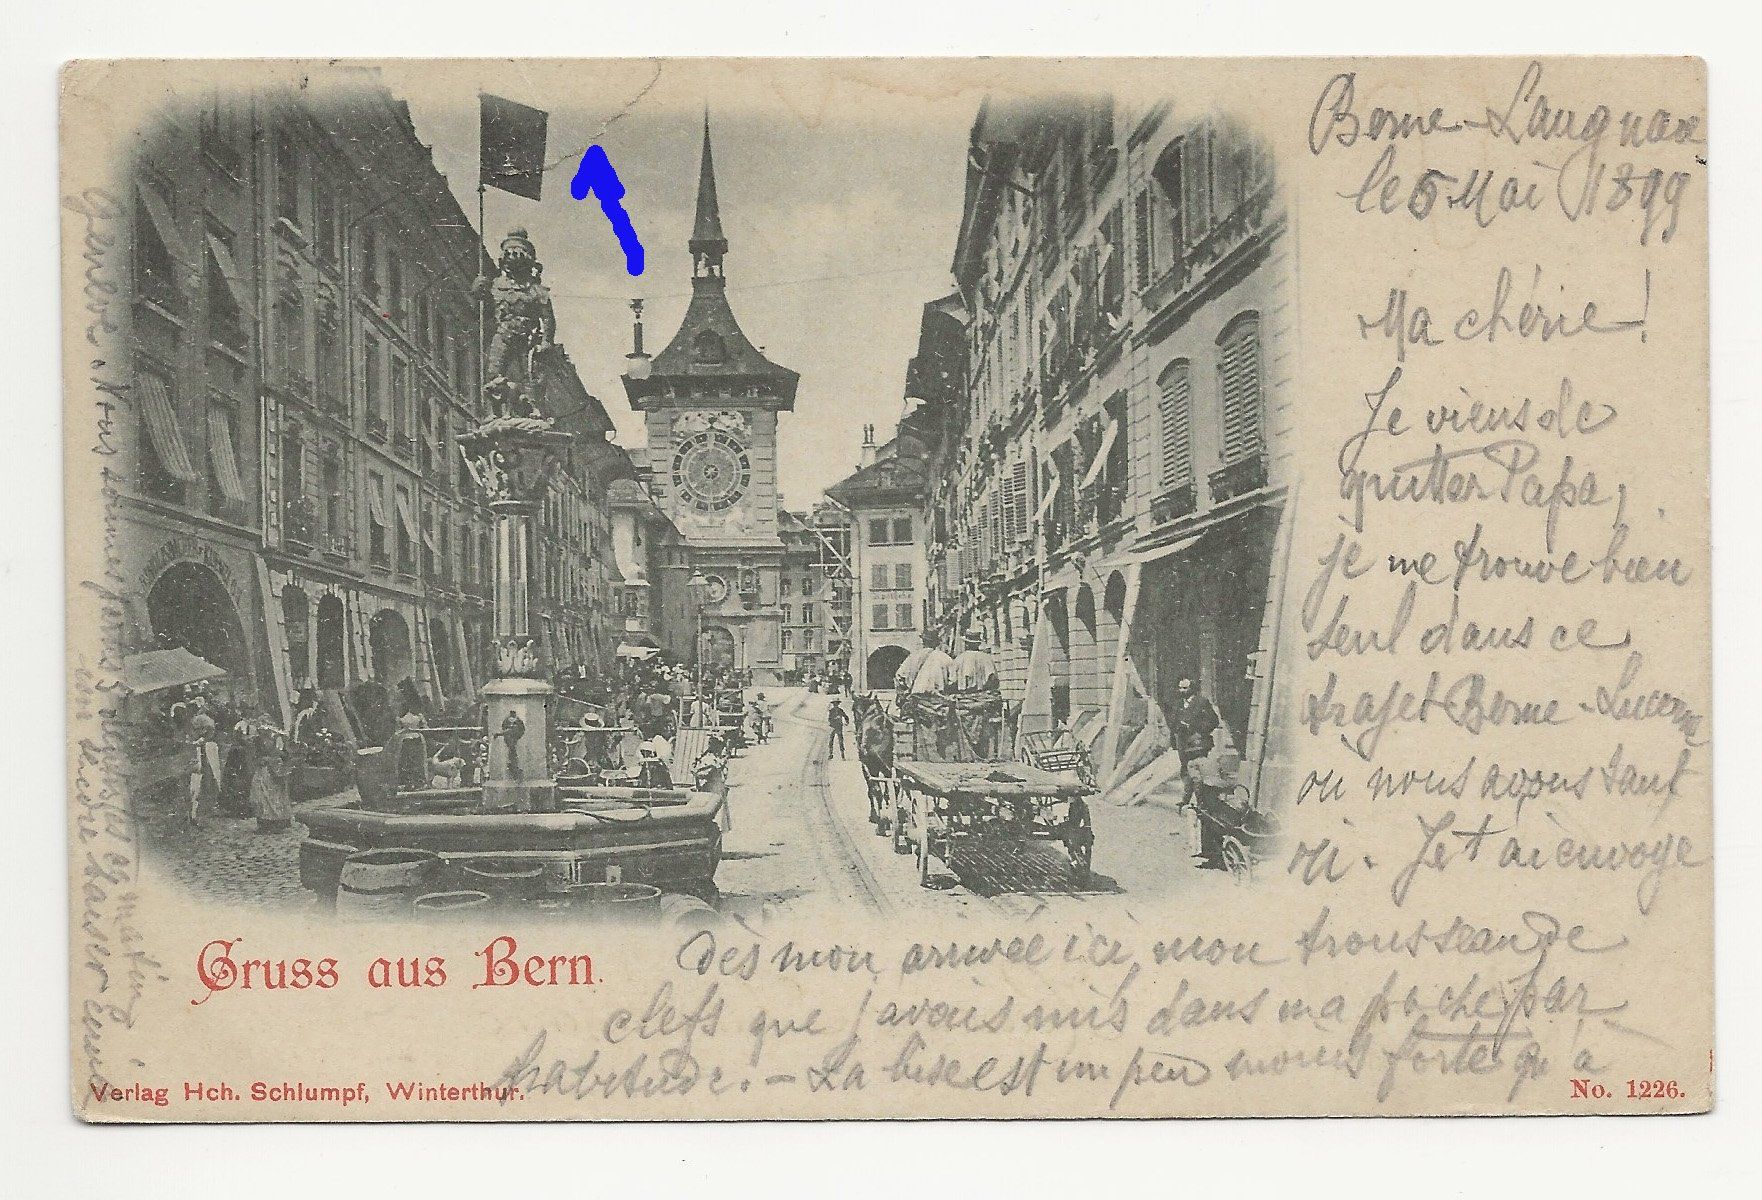 Berne-Laugnau
le 5 Mai 1899
Ma chérie!
Je viens de
quitter Papa,
je me trouve bien
seul dans ce
trajet Berne-Lucerne
où nous avons tant
ri. Je t'ai envoyé
dès mon arrivée ici mon trousseau de
clefs que j'avais mis dans ma poche par
habitude. - La bise est un peu moins forte qu'à
Genève. Nous sommes
encore
Gruss aus Bern.
Verlag Hch. Schlumpf, Winterthur.
No. 1226.